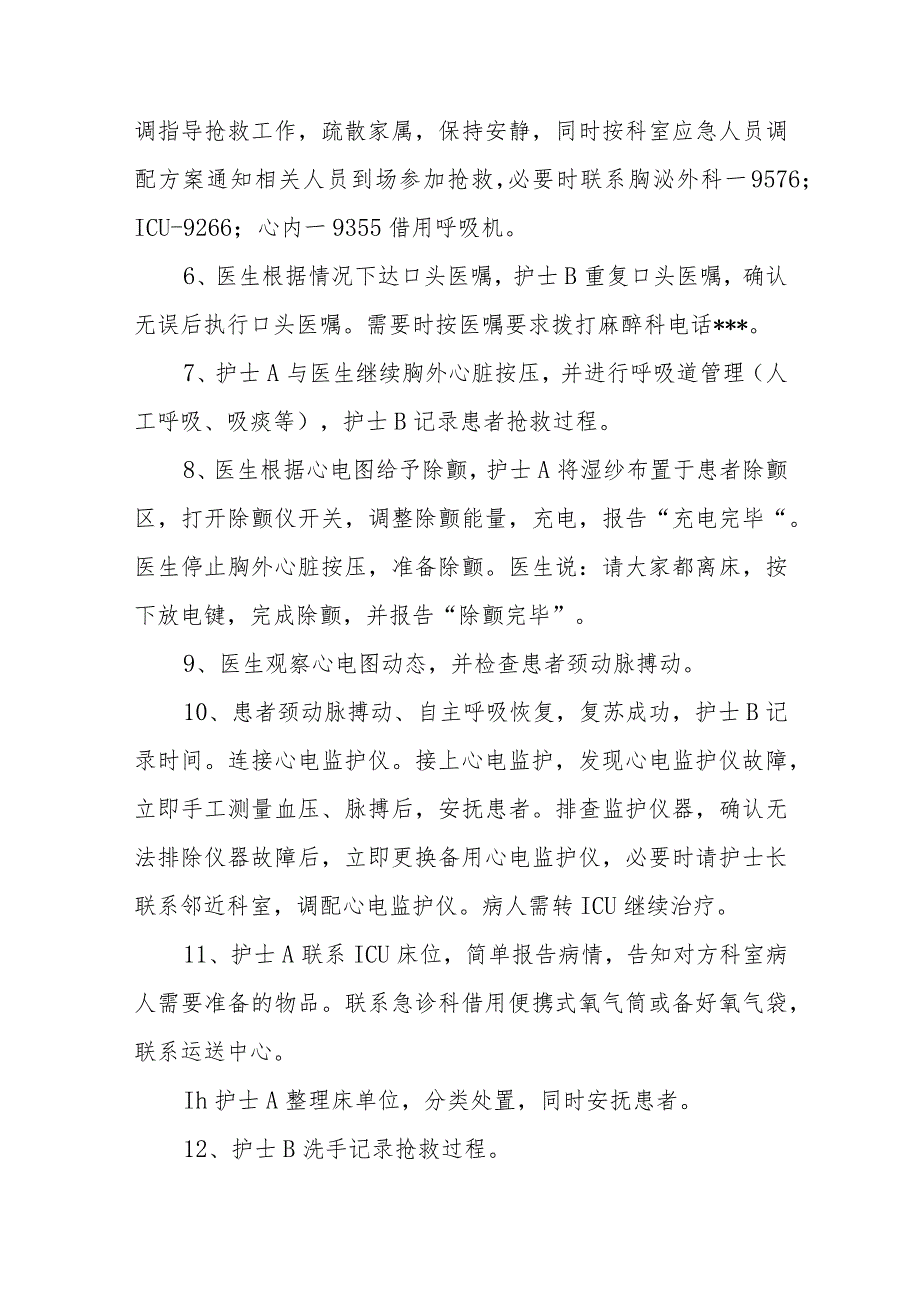 调指导抢救工作，疏散家属，保持安静，同时按科室应急人员调
配方案通知相关人员到场参加抢救,必要时联系胸泌外科一9576；
ICU-9266；心内一9355借用呼吸机。
6、医生根据情况下达口头医嘱，护士B重复口头医嘱，确认
无误后执行口头医嘱。需要时按医嘱要求拨打麻醉科电话***。
7、护士A与医生继续胸外心脏按压，并进行呼吸道管理（人
工呼吸、吸痰等），护士B记录患者抢救过程。
8、医生根据心电图给予除颤，护士A将湿纱布置于患者除颤
区，打开除颤仪开关，调整除颤能量，充电，报告“充电完毕“。
医生停止胸外心脏按压，准备除颤。医生说：请大家都离床，按
下放电键，完成除颤，并报告“除颤完毕”。
9、医生观察心电图动态，并检查患者颈动脉搏动。
10、患者颈动脉搏动、自主呼吸恢复，复苏成功，护士B记
录时间。连接心电监护仪。接上心电监护，发现心电监护仪故障，
立即手工测量血压、脉搏后，安抚患者。排查监护仪器，确认无
法排除仪器故障后，立即更换备用心电监护仪，必要时请护士长
联系邻近科室，调配心电监护仪。病人需转ICU继续治疗。
11、护士A联系ICU床位，简单报告病情，告知对方科室病
人需要准备的物品。联系急诊科借用便携式氧气筒或备好氧气袋，
联系运送中心。
Ih护士A整理床单位，分类处置，同时安抚患者。
12、护士B洗手记录抢救过程。